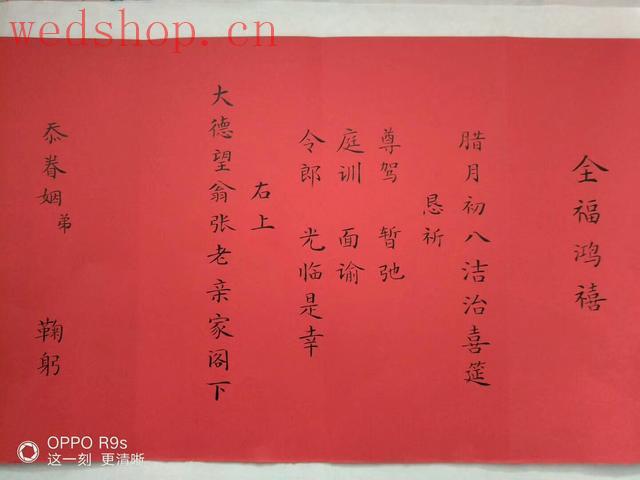 wedshop.cn
全福鸿禧
腊月初八洁治喜筵
恳祈
尊驾 暂弛
庭训 面谕
令郎 光临是幸
右上
大德望翁张老亲家阁下
忝眷姻弟 鞠躬
OPPO R9s
这一刻 更清晰